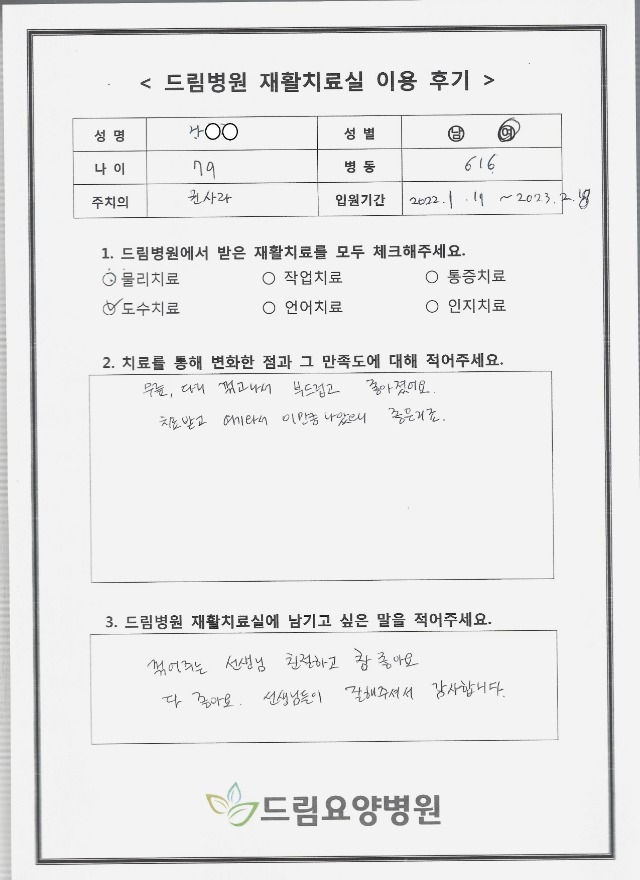 < 드림병원 재활치료실 이용 후기 >
성 명 ○○ 성 별 남 여
나 이 79 병 동 616
주치의 권사라 입원기간 2022. 1. 19 ~ 2023. 2. 18
1. 드림병원에서 받은 재활치료를 모두 체크해주세요.
○ 물리치료 ○ 작업치료 ○ 통증치료
○ 도수치료 ○ 언어치료 ○ 인지치료
2. 치료를 통해 변화한 점과 그 만족도에 대해 적어주세요.
무릎, 다리 꺾고나서 부드럽고 좋아졌어요.
치료받고 여기와서 이만큼 나았으니 좋은거죠.
3. 드림병원 재활치료실에 남기고 싶은 말을 적어주세요.
꺾어주는 선생님 친절하고 참 좋아요
다 좋아요. 선생님들이 잘해주셔서 감사합니다.
드림요양병원